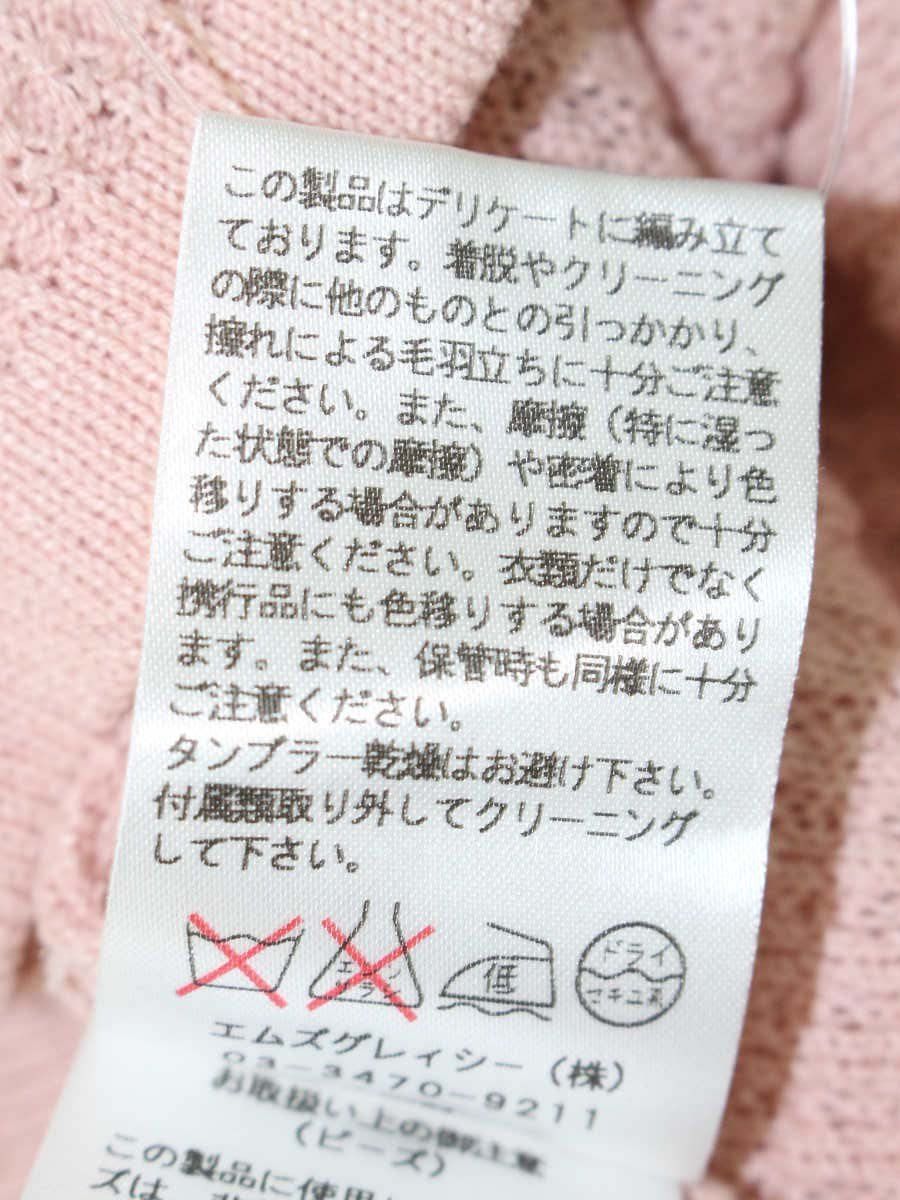 この製品はデリケートに編み立て
ております。着脱やクリーニング
の際に他のものとの引っかかり、
擦れによる毛羽立ちに十分ご注意
ください。また、摩擦（特に湿っ
た状態での摩擦）や密着により色
移りする場合がありますので十分
ご注意ください。衣類だけでなく
携行品にも色移りする場合があり
ます。また、保管時も同様に十分
ご注意ください。
タンブラー乾燥はお避け下さい。
付属類取り外してクリーニング
して下さい。
低 ドライ
エムズグレイシー（株）
03-3470-9211
お取扱い上の御注意
（ビーズ）
この製品に使用
ズは、